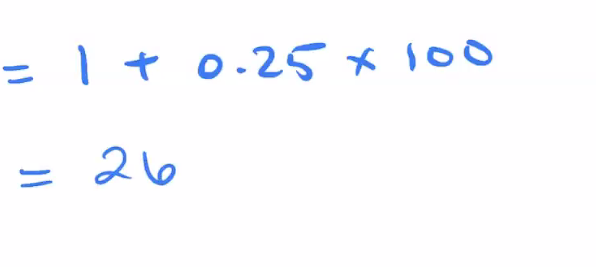 = 1 + 0.25 × 100
= 26